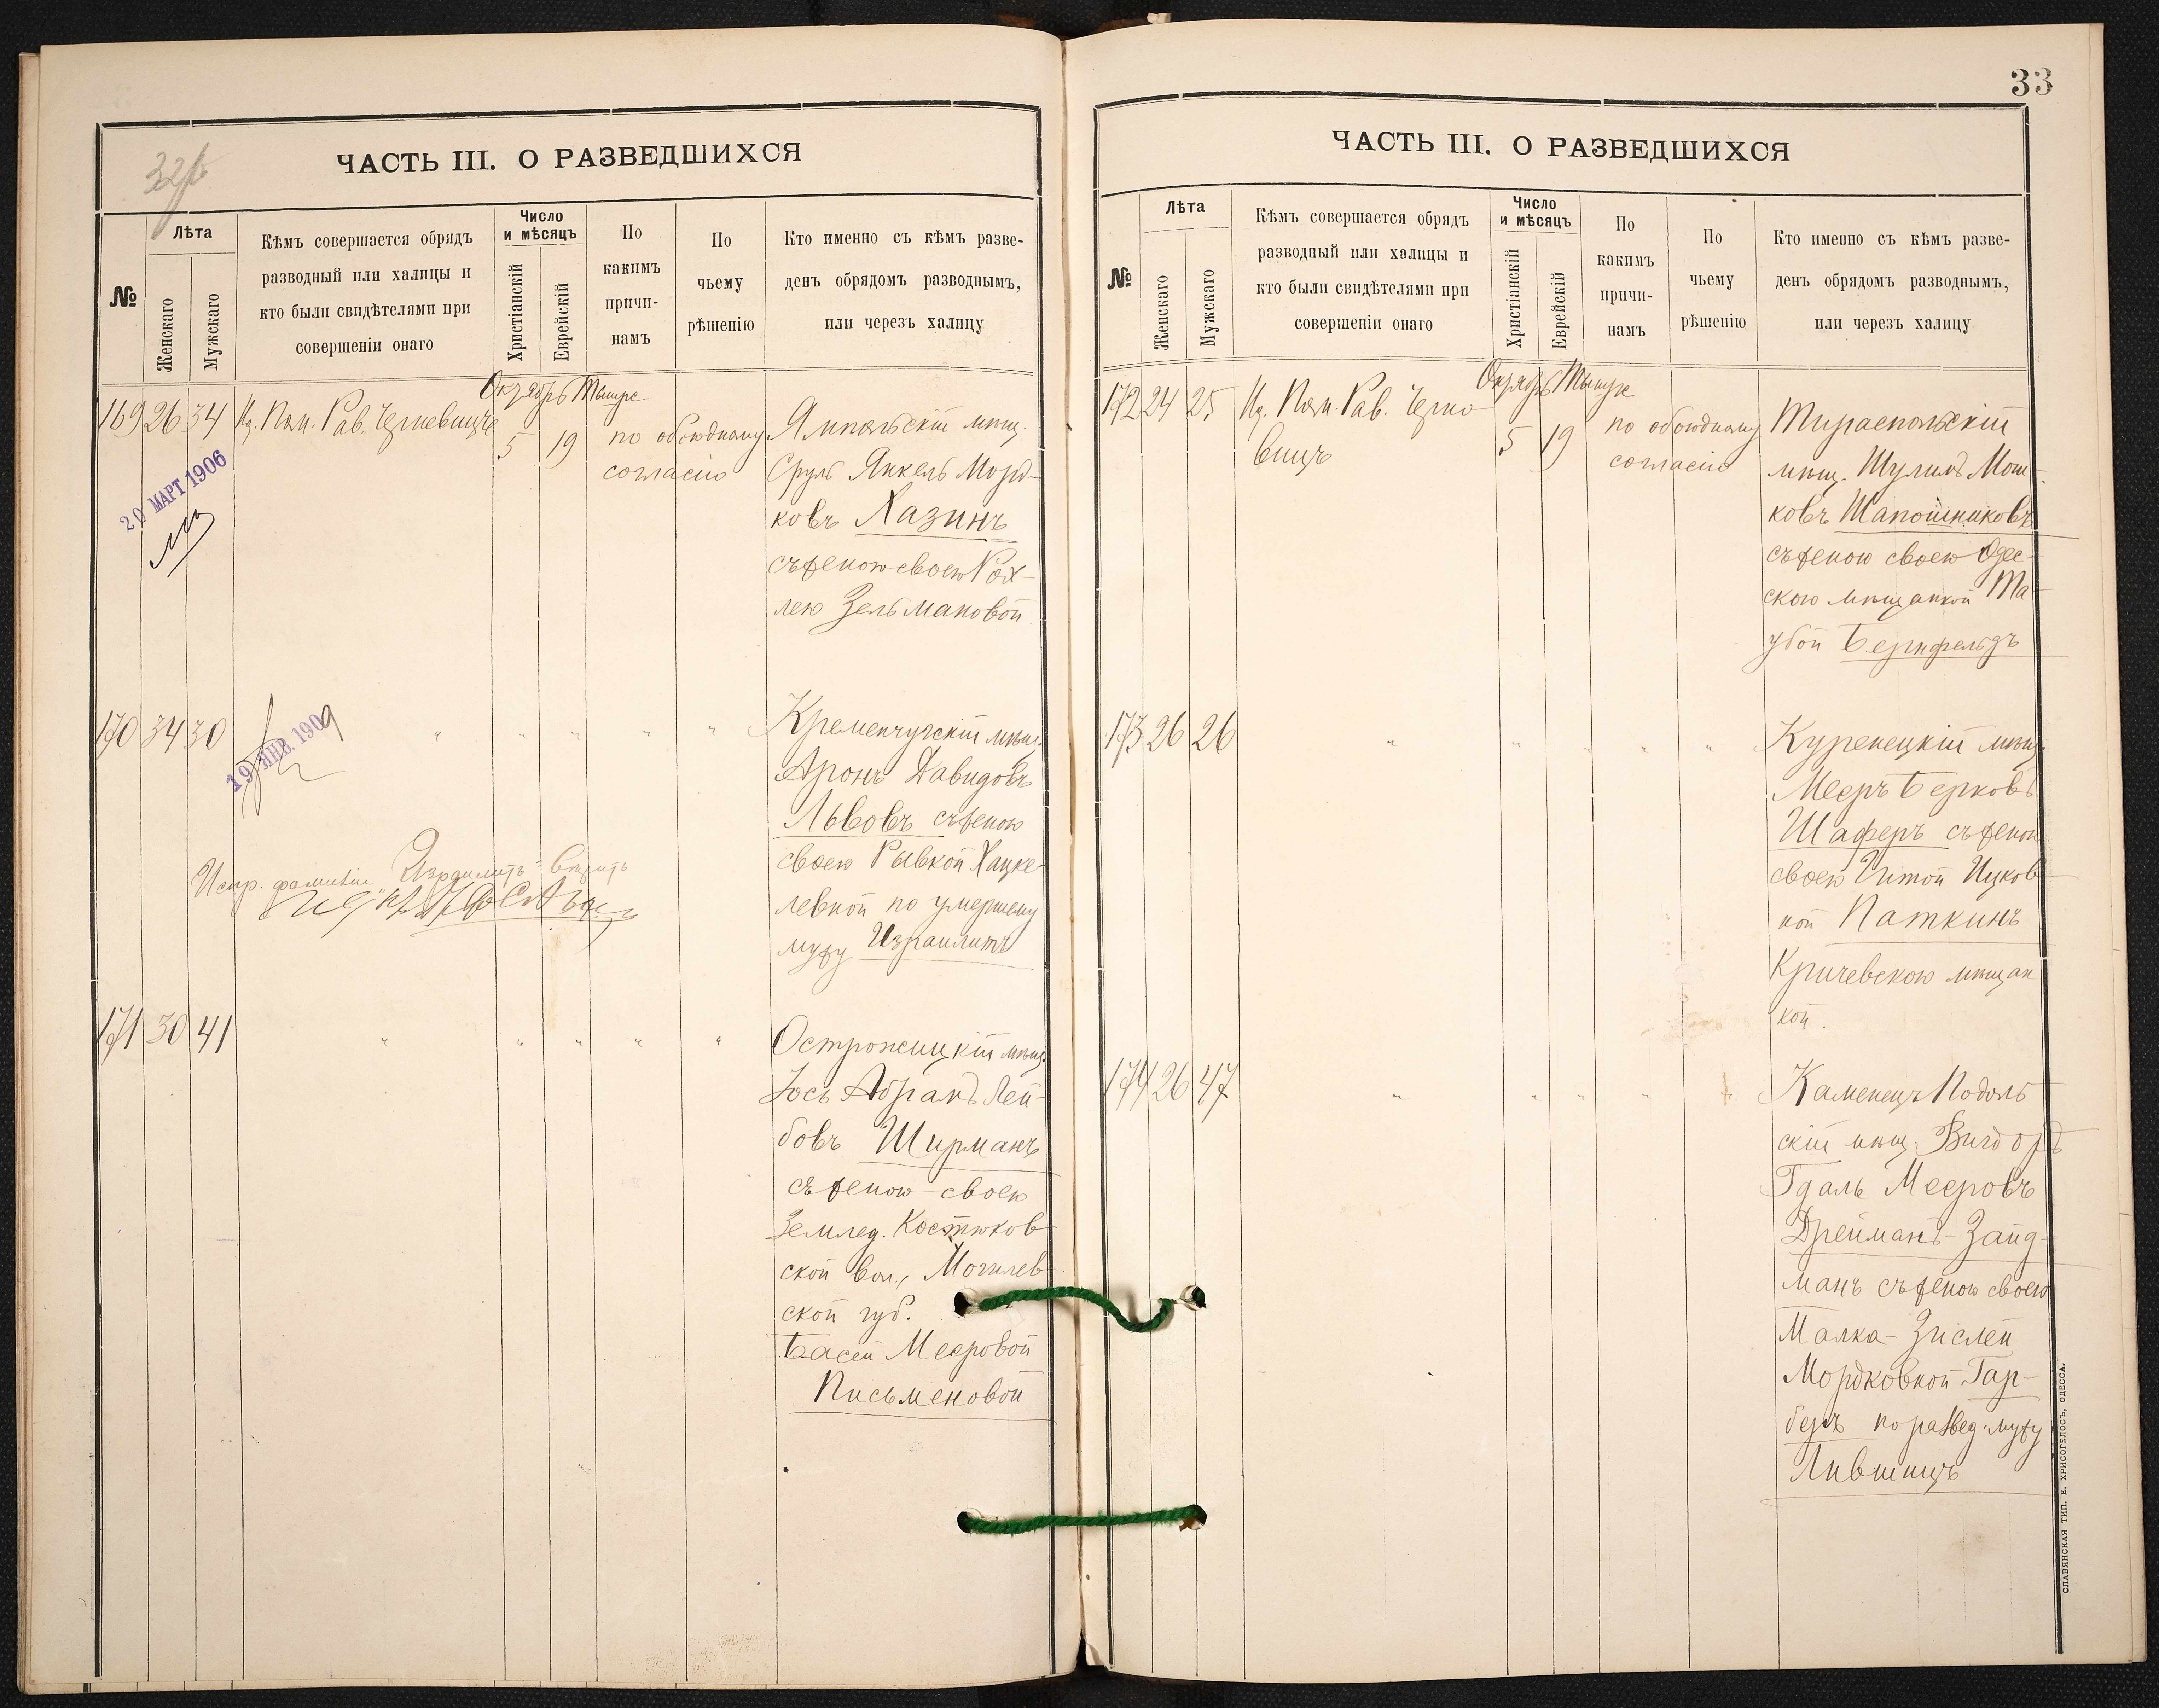 32об
ЧАСТЬ III. О РАЗВЕДШИХСЯ
№
Лѣта
Женскаго
Мужскаго
Кѣмъ совершается обрядъ
разводный или халицы и
кто были свидѣтелями при
совершеніи онаго
Число
и мѣсяцъ
Христіанскій
Еврейскій
По
какимъ
причи-
намъ
По
чьему
рѣшенію
Кто именно съ кѣмъ разве-
денъ обрядомъ разводнымъ,
или черезъ халицу
Октябрь Тышре
169 26 34 Из. Пом. Рав. 5 19 по обоюдному
согласію
Ямпольскій мѣщ.
Сруль Янкель Морд-
ковъ Хазинъ
съ женою своею Рох-
лею Зельмановой
20 МАРТ 1906
170 34 30 " " " " "
19 ЯНВ. 1909
Кременчугскій мѣщ.
Аронъ Давидовъ
Львовъ съ женою
своею Рывкой Хацке-
левной по умершему
мужу Израилитъ
Испр. фамилія "Израилитъ" вѣрить
171 30 41 " " " " "
Острожицкій мѣщ.
Іось Абрамъ Лей-
бовъ Ширманъ
съ женою своею
Землед. Костюков-
ской вол., Могилев-
ской губ.
Басей Мееровой
Письменовой
33
ЧАСТЬ III. О РАЗВЕДШИХСЯ
№
Лѣта
Женскаго
Мужскаго
Кѣмъ совершается обрядъ
разводный или халицы и
кто были свидѣтелями при
совершеніи онаго
Число
и мѣсяцъ
Христіанскій
Еврейскій
По
какимъ
причи-
намъ
По
чьему
рѣшенію
Кто именно съ кѣмъ разве-
денъ обрядомъ разводнымъ,
или черезъ халицу
Октябрь Тышре
172 24 25 Из. Пом. Рав. Черно-
вицъ
5 19 по обоюдному
согласію
Тираспольскій
мѣщ. Шулимъ Мош-
ковъ Шапошниковъ
съ женою своею Одес-
скою мѣщанкой Та-
убой Бернфельдъ
173 26 26 " " " " "
Куренецкій мѣщ.
Мееръ Берковъ
Шаферъ съ женою
своею Гитой Ицков-
ной Паткинъ
Кричевскою мѣщан
кой.
174 26 47 " " " " "
Каменецъ Подоль
скій мѣщ. Вигдоръ
Гдаль Мееровъ
Дрейманъ-Зайд-
манъ съ женою своею
Малка-Зислей
Мордковной Гар-
беръ по развед. мужу
Лившицъ
СЛАВЯНСКАЯ ТИП. Е. ХРИСОГЕЛОСЪ, ОДЕССА.